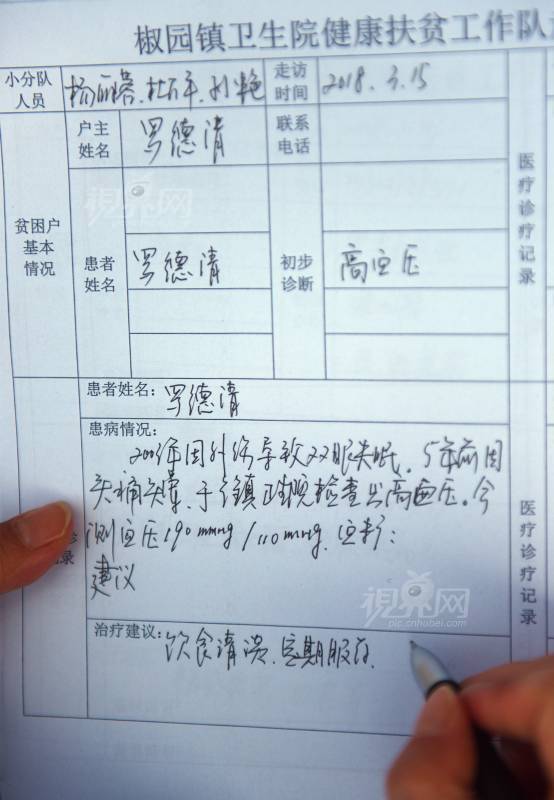 椒园镇卫生院健康扶贫工作队
小分队人员 杜万平 走访时间 2018.3.15
户主姓名 罗德清 联系电话
贫困户基本情况
患者姓名 罗德清 初步诊断 高血压
医疗诊疗记录
患者姓名：罗德清
患病情况：
年因外伤导致双眼失明，5年前因
头痛头晕，于 镇卫生院检查出高血压。今
测血压190mmHg/110mmHg，血糖：
建议
医疗诊疗记录
诊
记录
治疗建议：饮食清淡、定期服药、
視界网
視界网
pic.cnhubei.com